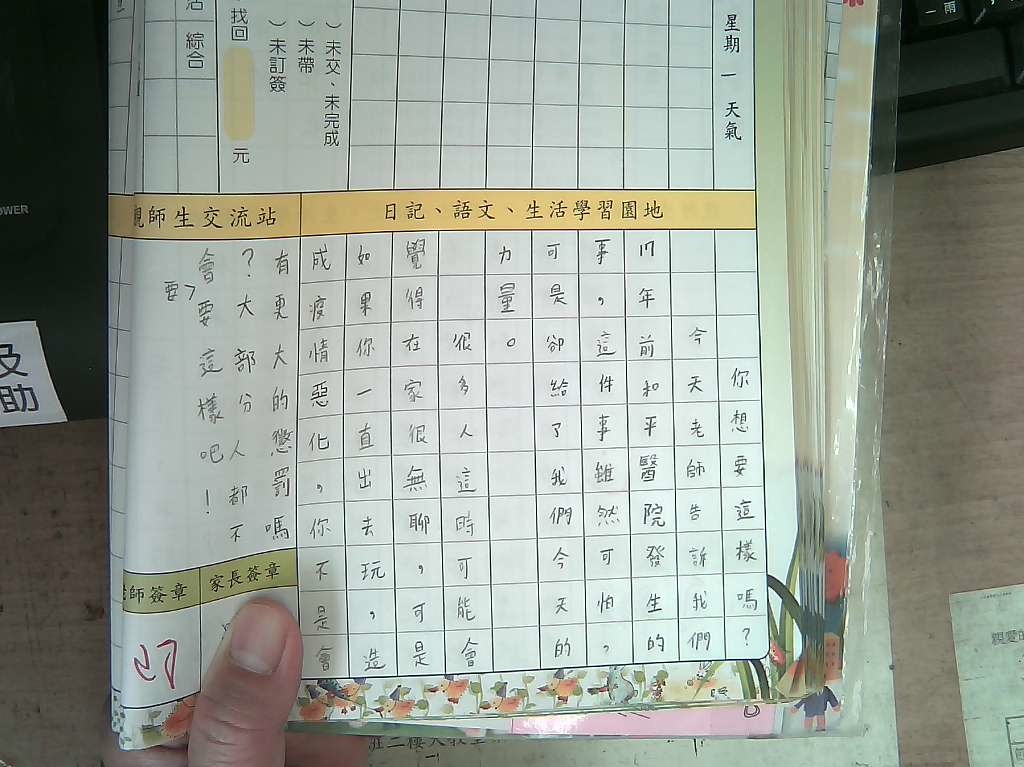 星期一 天氣
）未交、未完成
）未帶
）未訂簽
找回
元
綜合
日記、語文、生活學習園地
你想要這樣嗎？
今天老師告訴我們
17年前和平醫院發生的
事，這件事雖然可怕，
可是卻給了我們今天的
力量。
很多人這時可能會
覺得在家很無聊，可是
如果你一直出去玩，造
成疫情惡化，你不是會
親師生交流站
有更大的懲罰嗎
？大部分人都不
會要這樣吧！
要
家長簽章
師簽章
及
助
POWER
一雨
親愛的